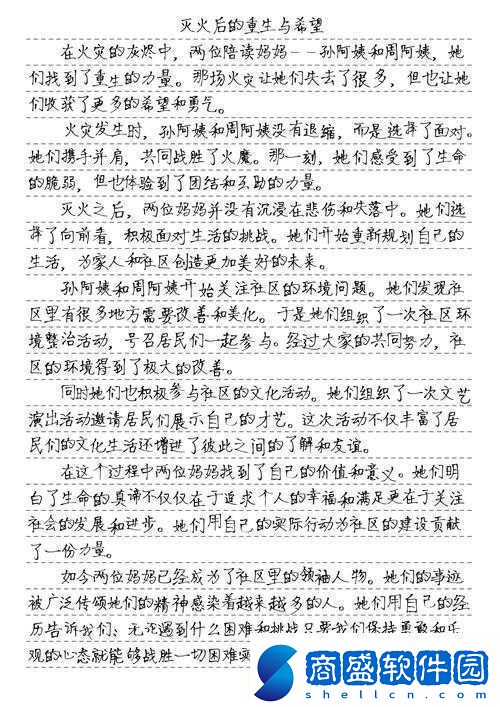 灭火后的重生与希望
在火灾的灰烬中，两位陪读妈妈--孙阿姨和周阿姨，她
们找到了重生的力量。那场火灾让她们失去了很多，但也让她
们收获了更多的希望和勇气。
火灾发生时，孙阿姨和周阿姨没有退缩，而是选择了面对。
她们携手并肩，共同战胜了火魔。那一刻，她们感受到了生命
的脆弱，但也体验到了团结和互助的力量。
灭火之后，两位妈妈并没有沉浸在悲伤和失落中。她们选
择了向前看，积极面对生活的挑战。她们开始重新规划自己的
生活，为家人和社区创造更加美好的未来。
孙阿姨和周阿姨开始关注社区的环境问题。她们发现社
区里有很多地方需要改善和美化。于是她们组织了一次社区环
境整治活动，号召居民们一起参与。经过大家的共同努力，社
区的环境得到了极大的改善。
同时她们也积极参与社区的文化活动。她们组织了一次文艺
演出活动邀请居民们展示自己的才艺。这次活动不仅丰富了居
民们的文化生活还增进了彼此之间的了解和友谊。
在这个过程中两位妈妈找到了自己的价值和意义。她们明
白了生命的真谛不仅仅在于追求个人的幸福和满足更在于关注
社会的发展和进步。她们用自己的实际行动为社区的建设贡献
了一份力量。
如今两位妈妈已经成为了社区里的领袖人物。她们的事迹
被广泛传颂她们的精神感染着越来越多的人。她们用自己的经
历告诉我们：无论遇到什么困难和挑战只要我们保持勇敢和乐
观的心态就能够战胜一切困难实
商盛软件园
shellcn.com